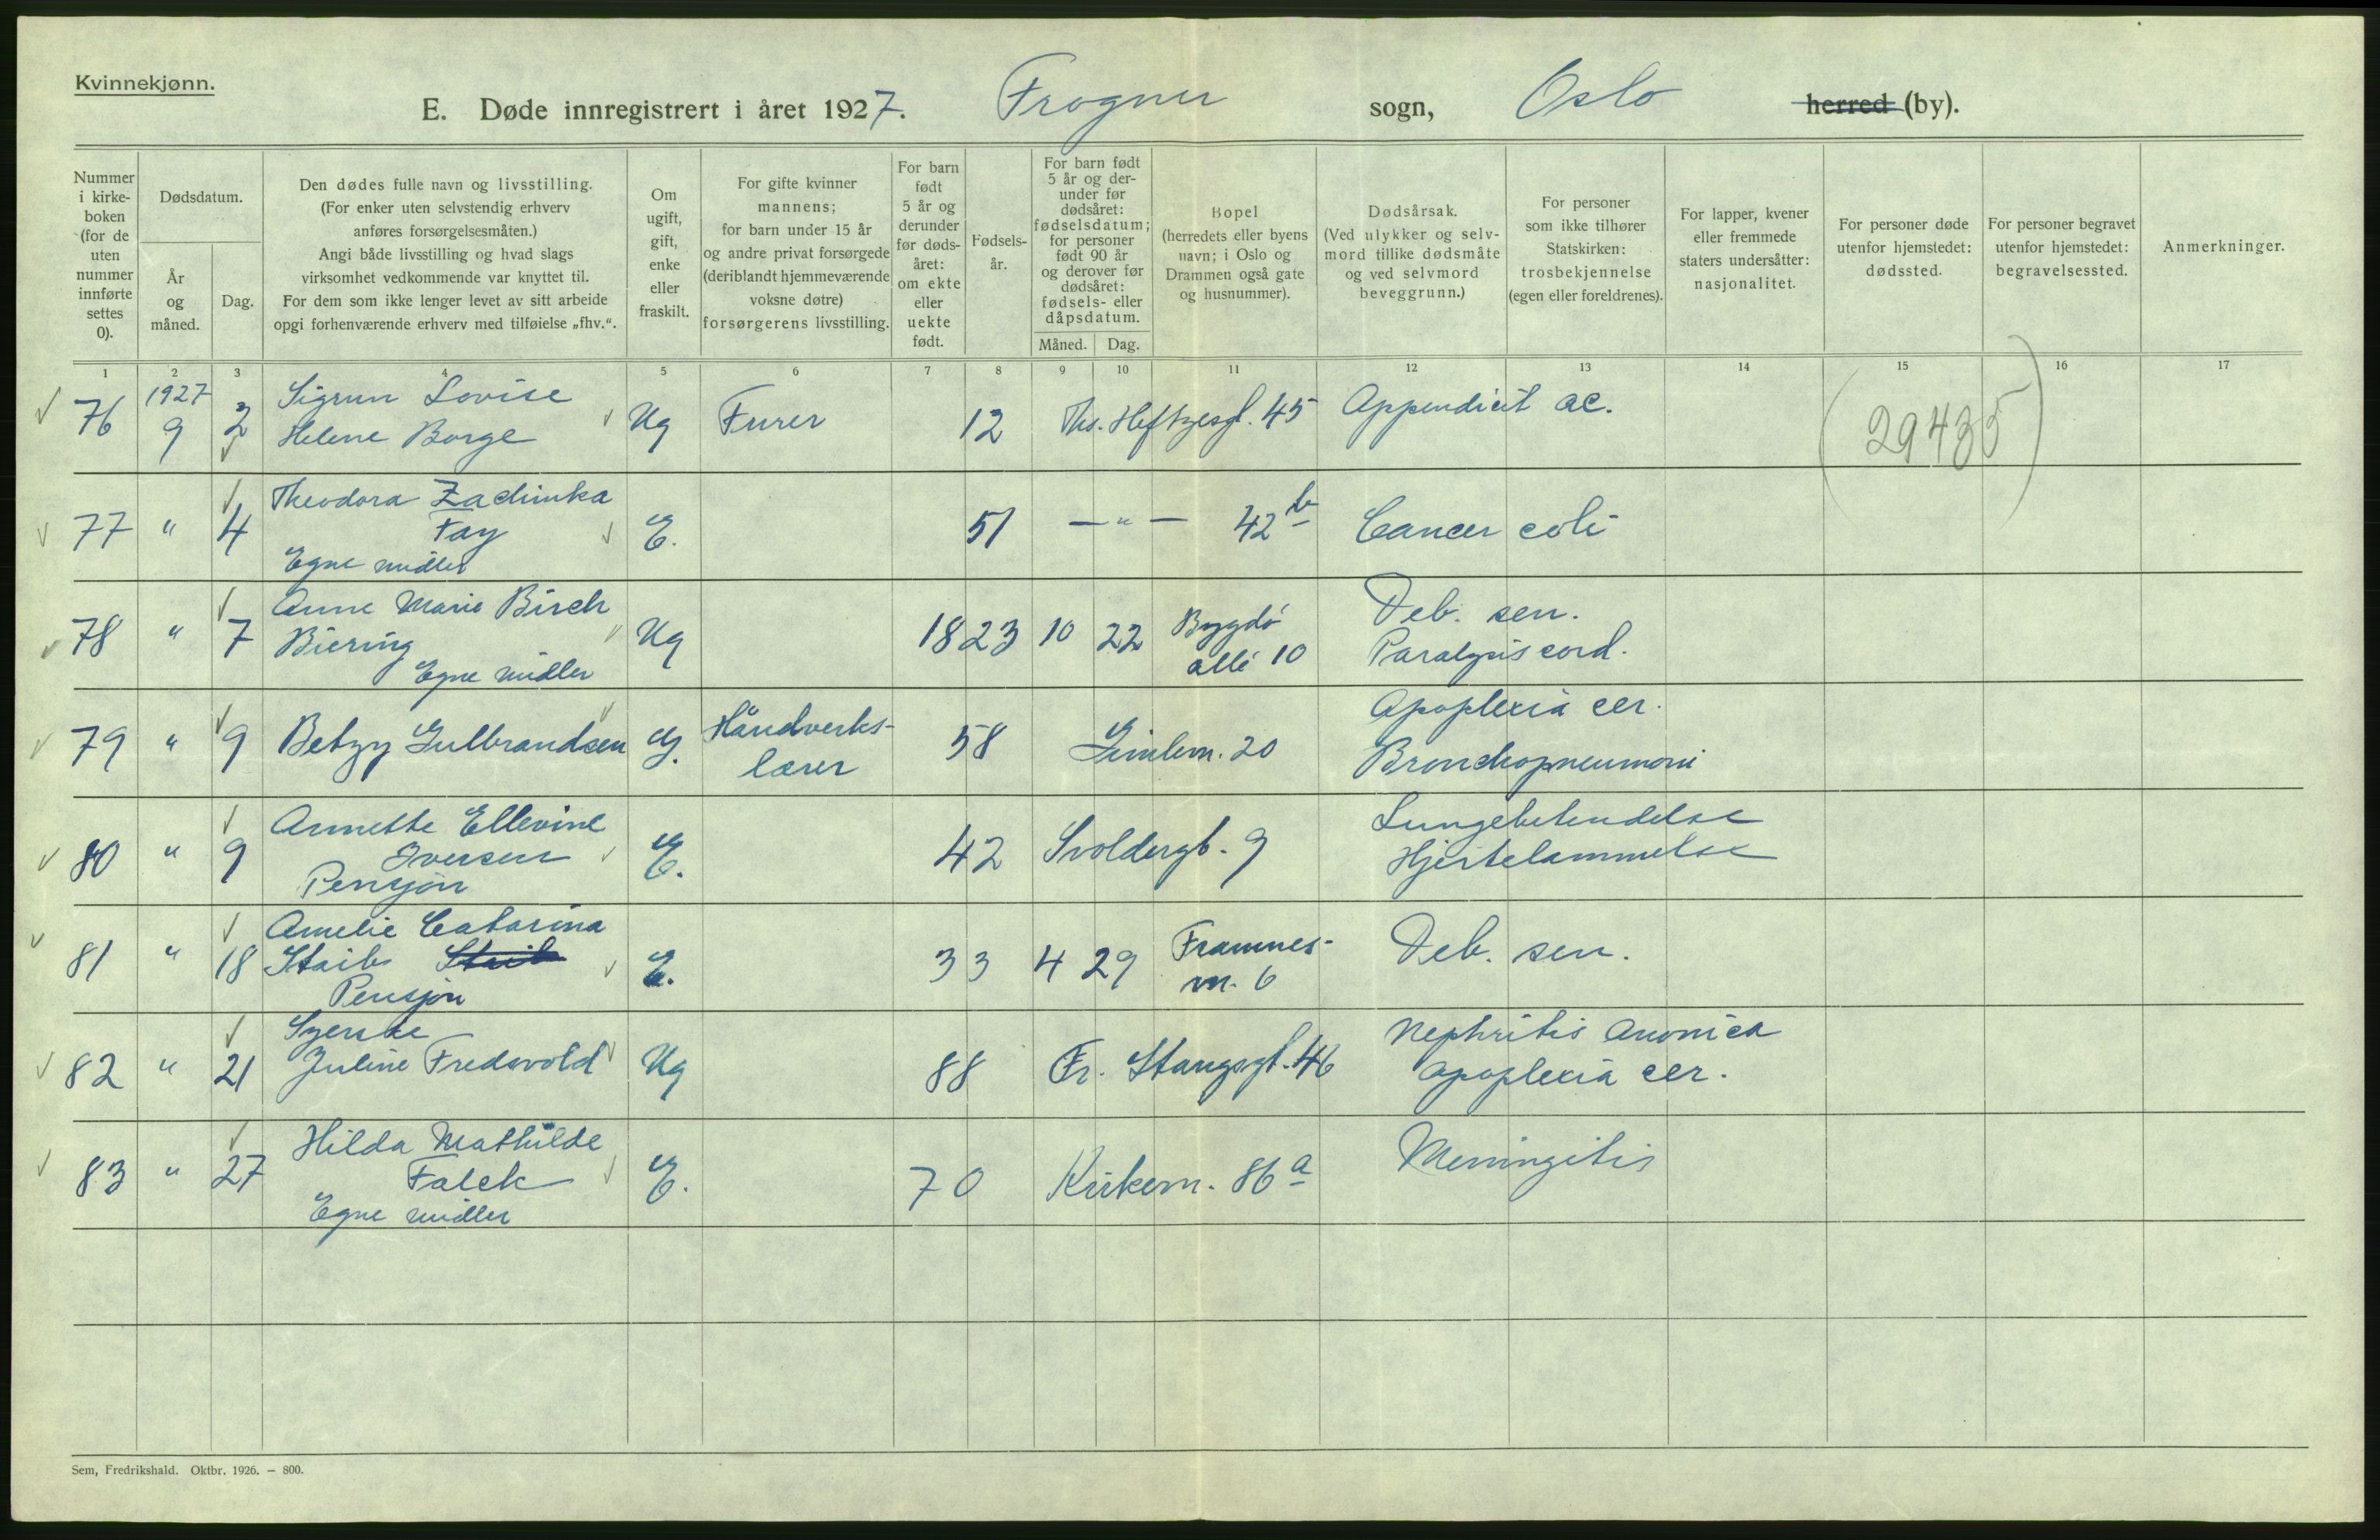 Kvinnekjønn.
E. Døde innregistrert i året 1927. Frogner sogn, Oslo herred (by).
Nummer i kirke-boken (for de uten nummer innførte settes 0).
Dødsdatum.
År og måned.
Dag.
Den dødes fulle navn og livsstilling.
(For enker uten selvstendig erhverv anføres forsørgelsesmåten.)
Angi både livsstilling og hvad slags virksomhet vedkommende var knyttet til.
For dem som ikke lenger levet av sitt arbeide opgi forhenværende erhverv med tilføielse „fhv.“.
Om ugift, gift, enke eller fraskilt.
For gifte kvinner mannens; for barn under 15 år og andre privat forsørgede (deriblandt hjemmeværende voksne døtre) forsørgerens livsstilling.
For barn født 5 år og derunder før døds-året: om ekte eller uekte født.
Fødsels-år.
For barn født 5 år og der-under før dødsåret: fødselsdatum; for personer født 90 år og derover før dødsåret: fødsels- eller dåpsdatum.
Måned. Dag.
Bopel (herredets eller byens navn; i Oslo og Drammen også gate og husnummer).
Dødsårsak. (Ved ulykker og selv-mord tillike dødsmåte og ved selvmord beveggrunn.)
For personer som ikke tilhører Statskirken: trosbekjennelse (egen eller foreldrenes).
For lapper, kvener eller fremmede staters undersåtter: nasjonalitet.
For personer døde utenfor hjemstedet: dødssted.
For personer begravet utenfor hjemstedet: begravelsessted.
Anmerkninger.
1 2 3 4 5 6 7 8 9 10 11 12 13 14 15 16 17
1927 Sigrun Lovise
76 9 2 Helene Borge Ug Furer 12 Ths. Heftyesgt. 45 Appendicit ac. (29435)
Theodora Zadimka
77 " 4 Fay E. 51 — " — 42 b Cancer coli
Egne midler
Anne Marie Birch Deb. sen.
78 " 7 Biering Ug 1823 10 22 Bygdö allé 10 Paralysis cord.
Egne midler
Apoplexia cer.
79 " 9 Betzy Gulbrandsen G. Håndverks-lærer 58 Gimlem. 20 Bronchopneumoni
Annette Ellevine Lungebetendelse
80 " 9 Iversen E. 42 Svoldergt. 9 Hjertelammelse
Pensjon
Amelie Catarina
81 " 18 Staib Staib E. 33 4 29 Framnes-m. 6 Deb. sen.
Pensjon
Syerske Nephritis cronica
82 " 21 Juline Fredsvold Ug 88 Fr. Stangsgt. 46 Apoplexia cer.
Hilda Mathilde
83 " 27 Falck E. 70 Kirkem. 86 a Meningitis
Egne midler
Sem, Fredrikshald. Oktbr. 1926. – 800.